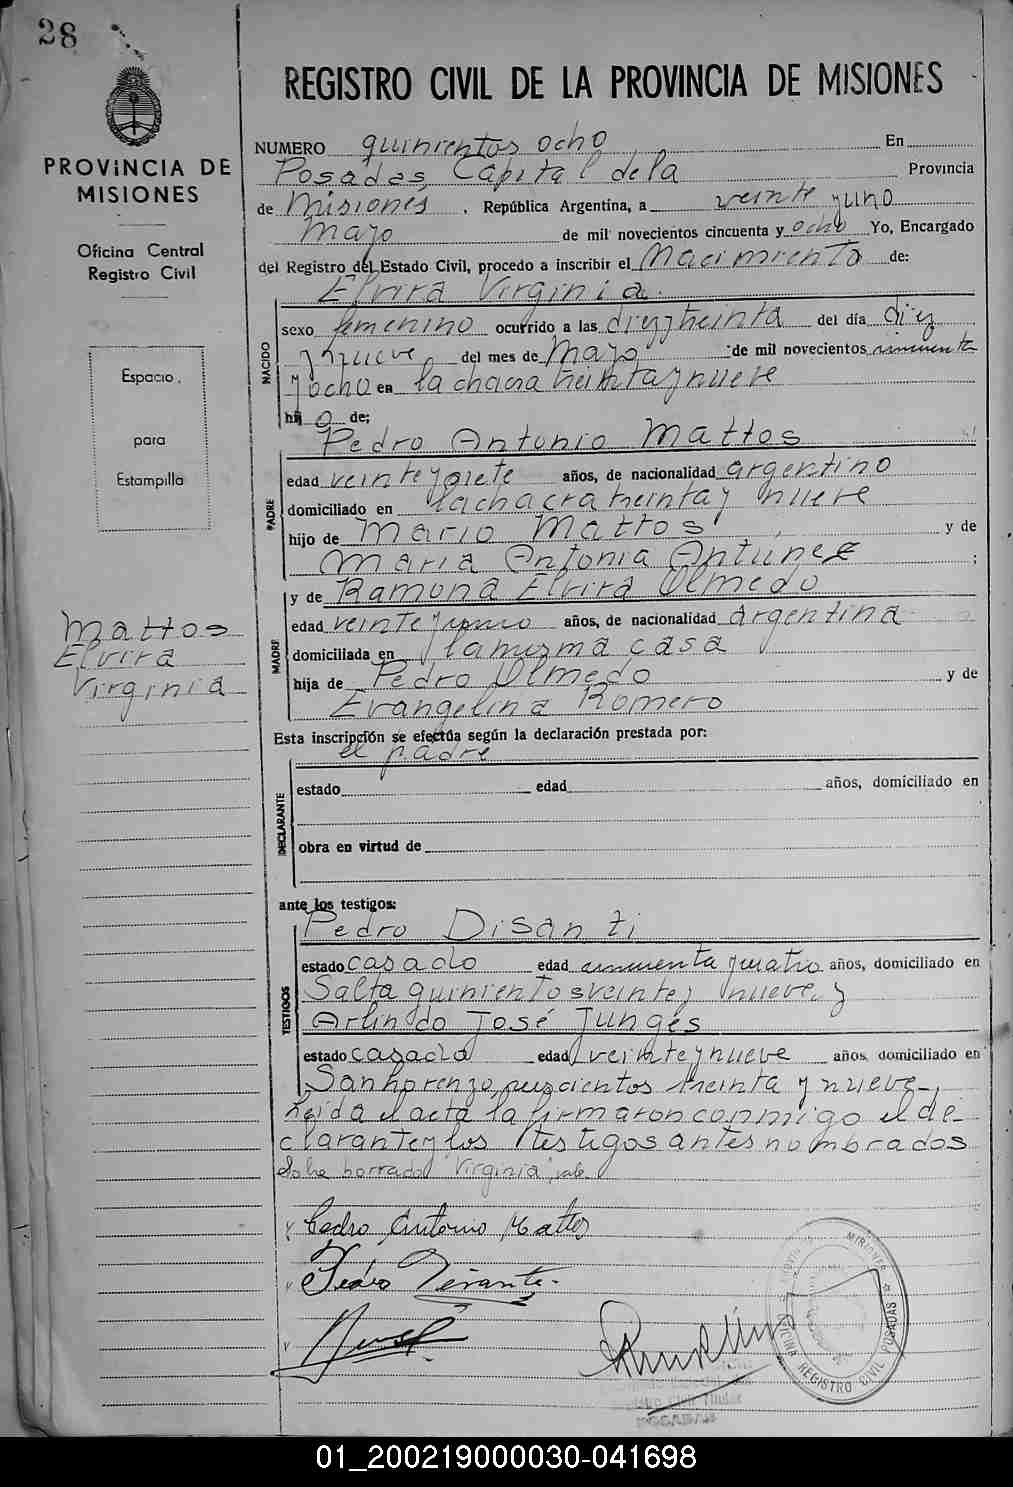 28
PROVINCIA DE
MISIONES
Oficina Central
Registro Civil
Espacio
para
Estampilla
Mattos
Elvira
Virginia
REGISTRO CIVIL DE LA PROVINCIA DE MISIONES
NUMERO quinientos ocho En
Posadas, Capital de la Provincia
de Misiones, República Argentina, a veinte y uno
Mayo de mil novecientos cincuenta y ocho Yo, Encargado
del Registro del Estado Civil, procedo a inscribir el Nacimiento de:
Elvira Virginia.
NACIDO
sexo femenino ocurrido a las diez y treinta del día diez
y nueve del mes de Mayo de mil novecientos cincuenta
y ocho en la chacra treinta y nueve
hij a de;
Pedro Antonio Mattos
PADRE
edad veinte y siete años, de nacionalidad argentino
domiciliado en la chacra treinta y nueve
hijo de Mario Mattos y de
Maria Antonia Antunez ;
y de Ramona Elvira Olmedo
MADRE
edad veinte y años, de nacionalidad argentina
domiciliada en la misma casa
hija de Pedro Olmedo y de
Evangelina Romero
Esta inscripción se efectúa según la declaración prestada por:
el padre
DECLARANTE
estado edad años, domiciliado en
obra en virtud de
ante los testigos:
Pedro Disanti
TESTIGOS
estado casado edad cincuenta y cuatro años, domiciliado en
Salta quinientos veinte y nueve, y
Arlindo José Junges
estado casado edad veinte y nueve años, domiciliado en
San Lorenzo, treinta y nueve,
leida el acta la firmaron conmigo el de-
clarante y los testigos antes nombrados
Sobre borrado "Virginia", vale
Pedro Antonio Mattos
Pedro
OFICINA REGISTRO CIVIL POSADAS
MISIONES
POSADAS
01_200219000030-041698